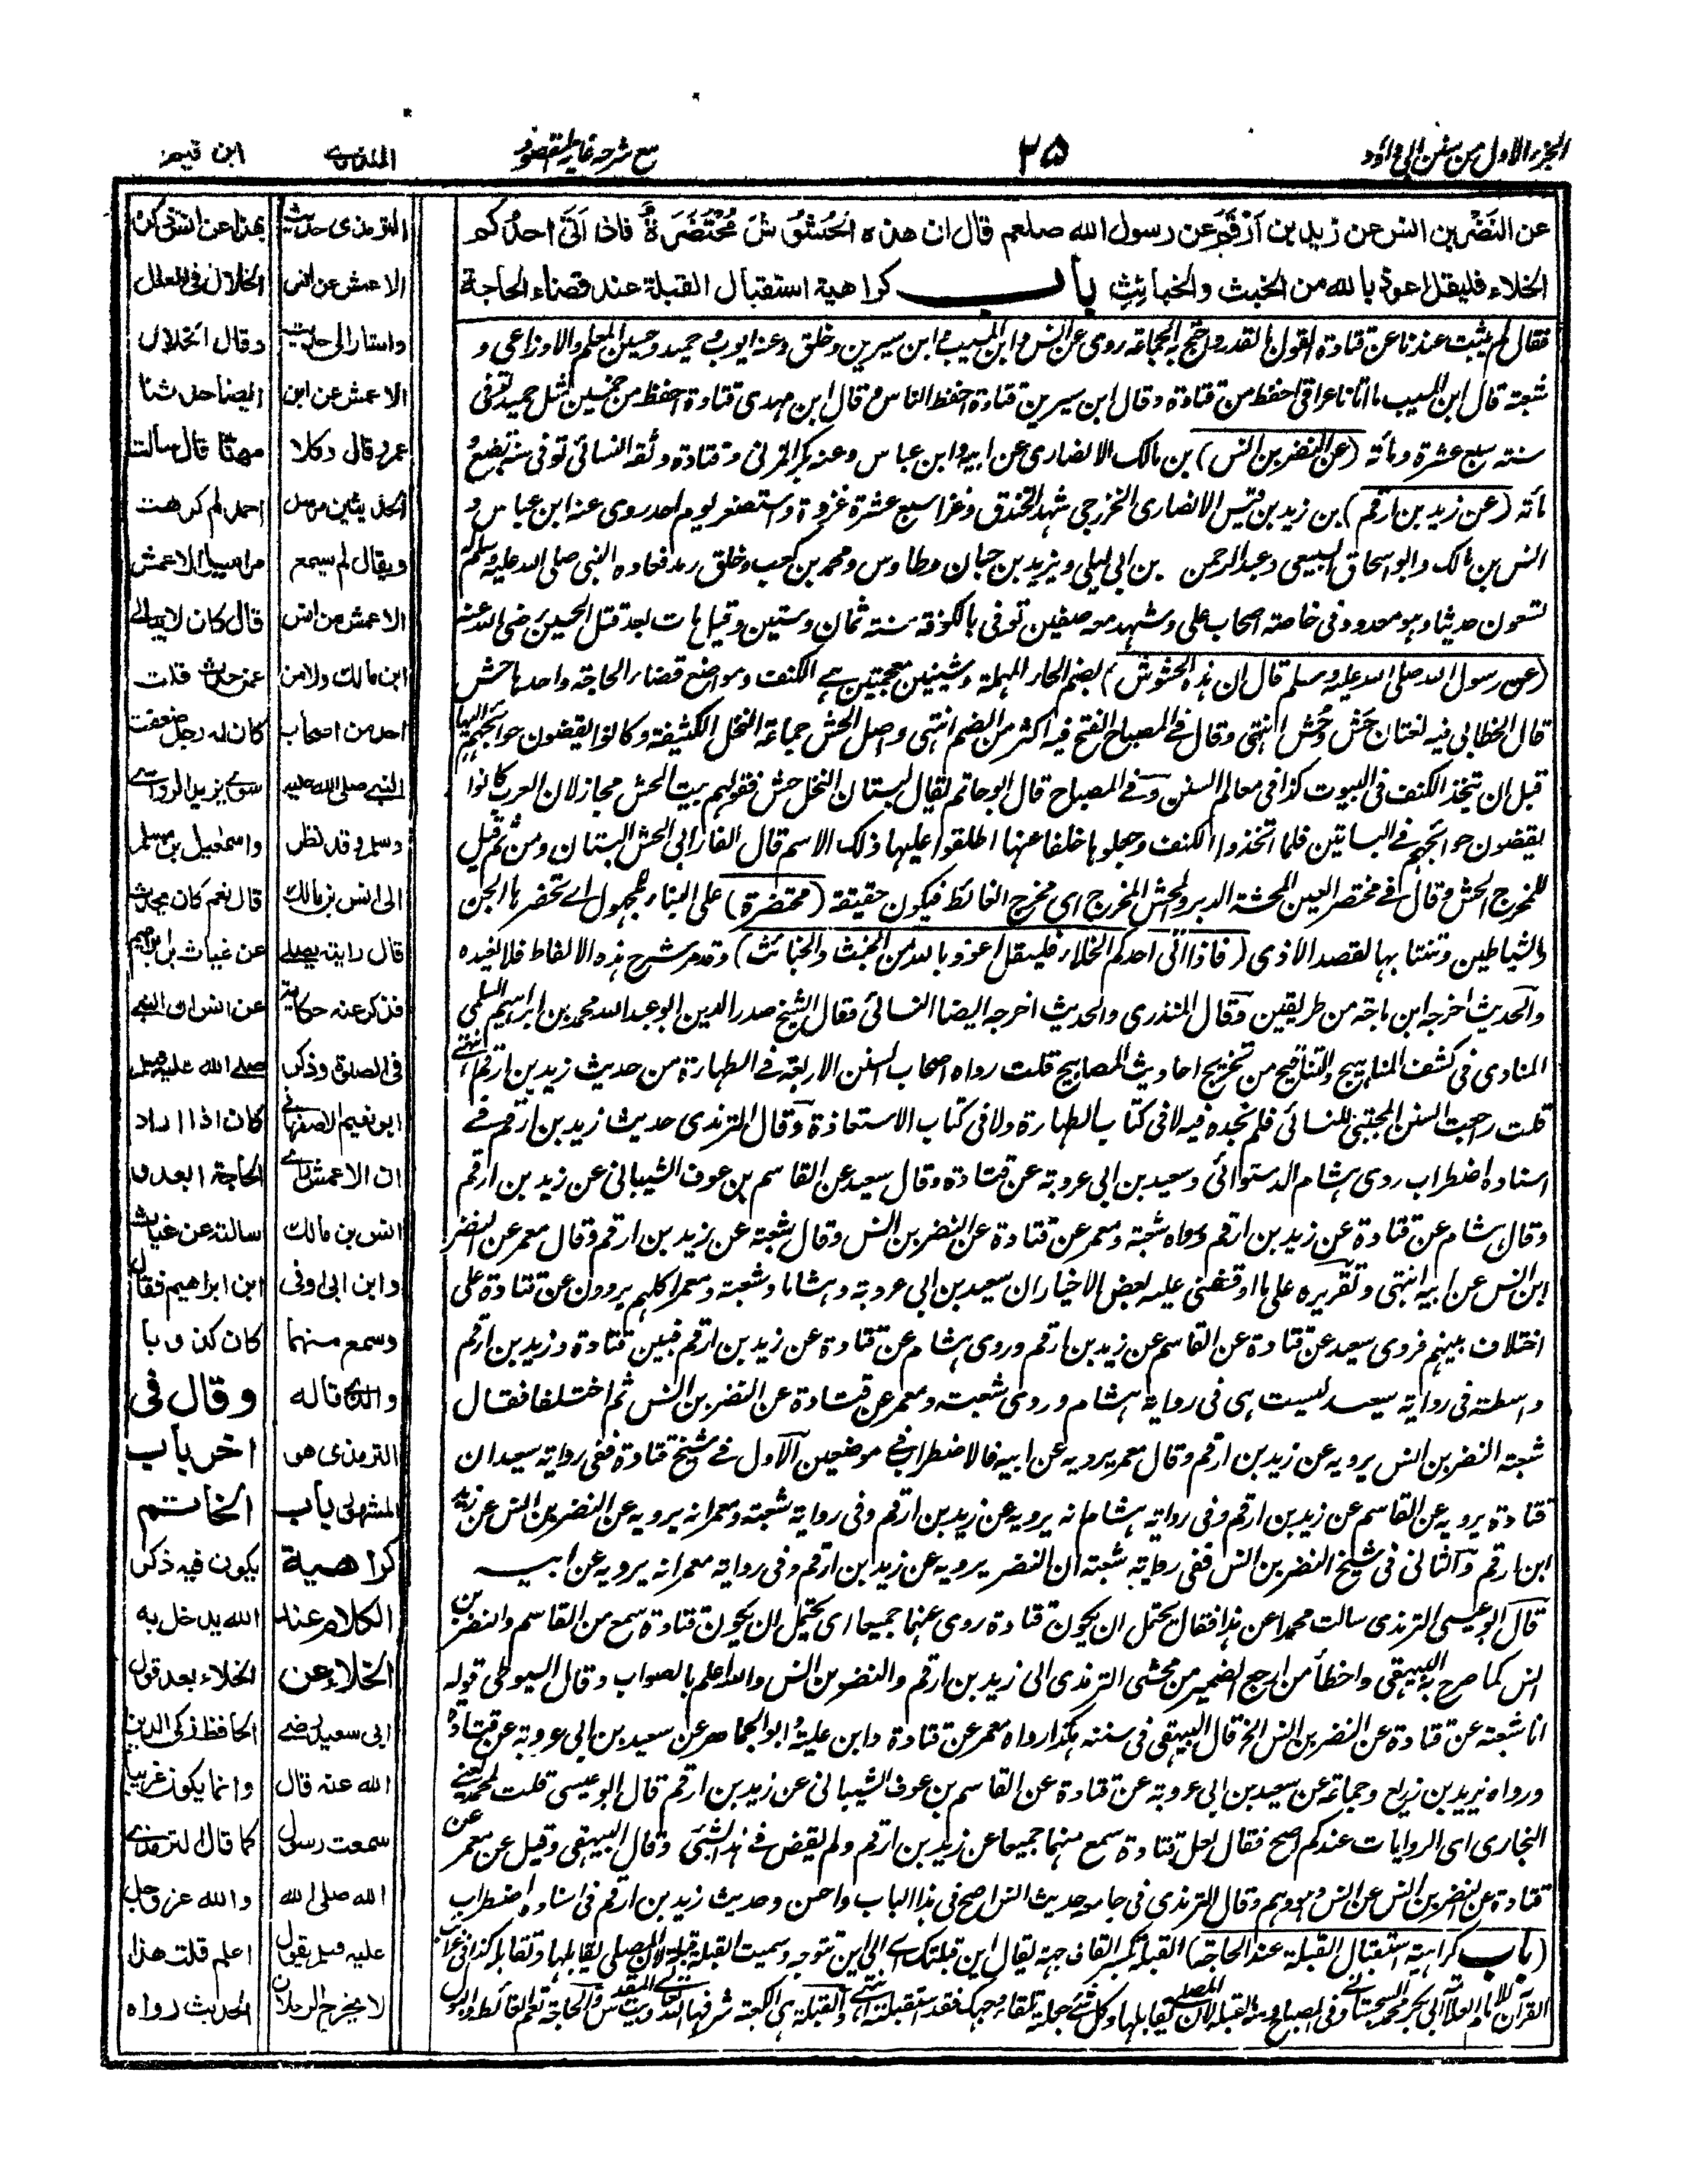 الجزء الاول من سنن ابی داؤد
۳۵
مع شرحه غاية المقصود
المنذری
ابن قیم
عن النَّضْرِ بن انس عن زيد بن اَرْقَمَ عن رسول الله صلعم قال ان هذه الحُشُوْشَ مُحْتَضَرَةٌ فاذا اَتَیٰ احدُكم
الخلاء فليقل اعوذ بالله من الخبث والخبائِثِ باب كراهية استقبال القبلة عند قضاء الحاجة
فقال لم یثبت عندنا عن قتادة القول بالقدر واحتج به الجماعة روی عن انس وابن المسیب وابن سیرین وخلق وعنه ایوب وحمید وحسین المعلم والاوزاعی و
شعبة قال ابن المسیب ما اتانا عراقی احفظ من قتادة وقال ابن سیرین قتادة احفظ الناس وقال ابن مهدی قتادة احفظ من خمسین مثل حمید توفی
سنة سبع عشرة ومأته (عن النضر بن انس) بن مالک الانصاری عن ابیه وابن عباس وعنه بکر المزنی وقتادة وثقه النسائی توفی سنة بضع و
مأته (عن زید بن ارقم) بن زید بن قیس الانصاری الخزرجی شهد الخندق وغزا سبع عشرة غزوة واستصغر یوم احد روی عنه ابن عباس و
انس بن مالک وابو اسحاق السبیعی وعبد الرحمن بن ابی لیلی ویزید بن حبان وطاوس ومحمد بن کعب وخلق
تسعون حدیثا وهو معدود فی خاصة اصحاب علی وشهد معه صفین توفی بالکوفة سنة ثمان وستین وقیل مات بعد قتل الحسین رضی الله عنه
(عن رسول الله صلی الله علیه وسلم قال ان هذه الحشوش) بضم الحاء المهملة وشینین معجمتین هے الکنف ومواضع قضاء الحاجة واحدها حش
قال الخطابی فیه لغتان حَش وحُش انتهی وقال فی المصباح الفتح فیه اکثر من الضم انتهی واصل الحش جماعة النخل الکثیفة وکانوا یقضون حوائجهم الیها
قبل ان تتخذ الکنف فی البیوت کذا فی معالم السنن وفی المصباح قال ابو حاتم یقال لبستان النخل حش فقولهم بیت الحش مجاز لان العرب کانوا
یقضون حوائجهم فی البساتین فلما اتخذوا الکنف وجعلوها خلفا عنها اطلقوا علیها ذلک الاسم قال الفارابی الحش البستان ومن ثم قیل
للمخرج الحش وقال فی مختصر العین المحشة الدبر والمحش المخرج ای مخرج الغائط فیکون حقیقة (محتضرة) علی البناء للمجهول اے تحضرها الجن
والشیاطین وتنتابها لقصد الاذی (فاذا اتی احدکم الخلاء فلیقل اعوذ بالله من الخبث والخبائث) وقد مر شرح هذه الالفاظ فلا نعیده
والحدیث اخرجه ابن ماجة من طریقین وقال المنذری والحدیث اخرجه ایضا النسائی فقال الشیخ صدر الدین ابو عبد الله محمد بن ابراهیم السلمی
المناوی فی کشف المناهیج والتناقیح من تخریج احادیث المصابیح قلت رواه اصحاب السنن الاربعة فے الطهارة من حدیث زید بن ارقم انتهی
قلت راجعت السنن المجتبی للنسائی فلم نجده فیه لا فی کتاب الطهارة ولا فی کتاب الاستعاذة وقال الترمذی حدیث زید بن ارقم فے
اسناده اضطراب روی هشام الدستوائی وسعید بن ابی عروبة عن قتادة وقال سعید عن القاسم بن عوف الشیبانی عن زید بن ارقم
وقال هشام عن قتادة عن زید بن ارقم ورواه شعبة ومعمر عن قتادة عن النضر بن انس وقال شعبة عن زید بن ارقم وقال معمر عن النضر
ابن انس عن ابیه انتهی وتقریره علی ما اوقفنی علیه بعض الاخیار ان سعید بن ابی عروبة وهشاما وشعبة ومعمرا کلهم یروون عن قتادة علی
اختلاف بینهم فروی سعید عن قتادة عن القاسم عن زید بن ارقم وروی هشام عن قتادة عن زید بن ارقم فبین قتادة وزید بن ارقم
واسطة فی روایة سعید لیست هی فی روایة هشام وروی شعبة ومعمر عن قتادة عن النضر بن انس ثم اختلفا فقال
شعبة النضر بن انس یرویه عن زید بن ارقم وقال معمر یرویه عن ابیه فالاضطراب فی موضعین الاول فے شیخ قتادة ففی روایة سعید ان
قتادة یرویه عن القاسم عن زید بن ارقم وفی روایة هشام انه یرویه عن زید بن ارقم وفی روایة شعبة ومعمر انه یرویه عن النضر بن انس عن زید
ابن ارقم والثانی فی شیخ النضر بن انس ففی روایة شعبة ان النضر یرویه عن زید بن ارقم وفی روایة معمر انه یرویه عن ابیه
قال ابو عیسی الترمذی سالت محمدا عن هذا فقال یحتمل ان یکون قتادة روی عنهما جمیعا ای یحتمل ان یکون قتادة سمع من القاسم والنضر بن
انس کما صرح به البیهقی واخطأ من ارجع الضمیر من محشی الترمذی الی زید بن ارقم والنضر بن انس والله اعلم بالصواب وقال السیوطی قوله
انا شعبة عن قتادة عن النضر بن انس الخ قال البیهقی فی سننه هکذا رواه معمر عن قتادة وابن علیة وابو الجماهر عن سعید بن ابی عروبة عن قتادة
ورواه یزید بن زریع وجماعة عن سعید بن ابی عروبة عن قتادة عن القاسم بن عوف الشیبانی عن زید بن ارقم قال ابو عیسی قلت لمحمد یعنی
البخاری ای الروایات عندکم اصح فقال لعل قتادة سمع منهما جمیعا عن زید بن ارقم ولم یقض فے هذا بشیئ وقال البیهقی وقیل عن معمر عن
قتادة عن النضر بن انس عن انس وهو وهم وقال الترمذی فی جامعه حدیث انس اصح فی هذا الباب واحسن وحدیث زید بن ارقم فی اسناده اضطراب
(باب کراهیة استقبال القبلة عند الحاجة) القبلة بکسر القاف جهة یقال این قبلتک اے الی این تتوجه وسمیت القبلة قبلة لان المصلی یقابلها وتقابله کذا فی غرائب
القرآن للامام العلامة ابی بکر محمد السجستانی وفی المصباح
الترمذی حدیث
الاعمش عن انس
واشار الی حدیث
الاعمش عن ابن
عمر وقال وكلا
الحدیثین مرسل
ویقال لم یسمع
الاعمش من انس
ابن مالك ولا من
احد من اصحاب
النبی صلی الله علیه
وسلم وقد نظر
الی انس بن مالك
قال رایته یصلی
فذكر عنه حكایة
فی الصلوة وذكر
ابو نعیم الاصفهانی
ان الاعمش رای
انس بن مالك
وابن ابی اوفی
وسمع منهما
والذی قاله
الترمذی هو
المشهور باب
كراهیة
الكلام عند
الخلاء عن
ابی سعید رضی
الله عنه قال
سمعت رسول
الله صلی الله
علیه وسلم یقول
لا یخرج الرجلان
الخلال فی العلل
وقال الخلال
ایضا حدثنا
مهنّا قال سالت
احمد لم كرهت
مراسیل الاعمش
قال كان لا یبالی
عمن حدث قلت
كان له رجل ضعیف
سوی یزید الرقاشی
واسمعیل بن مسلم
قال نعم كان یحدث
عن غیاث بن ابراهیم
عن انس ان النبی
صلی الله علیه وسلم
كان اذا اراد
الحاجة ابعد و
سالته عن غیاث
ابن ابراهیم فقال
كان كذوبا
وقال فی
اخر باب
الخاتم
یكون فیه ذكر
الله یدخل به
الخلاء بعد قول
الحافظ زكی الدین
وانما یكون غریبا
كما قال الترمذی
والله عز وجل
اعلم قلت هذا
الحدیث رواه